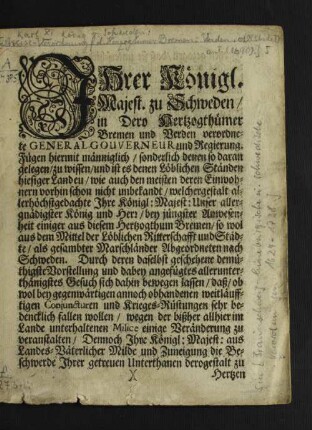 Ihrer Königl.
Majest. zu Schweden /
in Dero Hertzogthümer
Bremen und Verden verordne-
te GENERAL GOUVERNEUR und Regierung.
Fügen hiermit männiglich / sonderlich denen so daran
gelegen / zu wissen / und ist es denen Löblichen Ständen
hiesiger Landen / wie auch den meisten deren Einwoh-
nern vorhin schon nicht unbekandt / welchergestalt al-
lerhöchstgedachte Ihre Königl: Majest: Unser aller-
gnädigster König und Herr / bey jüngster Anwesen-
heit einiger aus diesem Hertzogthum Bremen / so wol
aus dem Mittel der Löblichen Ritterschafft und Städ-
te / als gesambter Marschländer Abgeordneten nach
Schweden. Durch deren daselbst geschehene demü-
thigste Vorstellung und dabey angefügtes allerunter-
thänigstes Gesuch sich dahin bewegen lassen / daß / ob
wol bey gegenwärtigen annoch obhandenen weitläuff-
tigen Conjuncturen und Krieges-Rüstungen sehr be-
dencklich fallen wollen / wegen der bißher allhier im
Lande unterhaltenen Milice einige Veränderung zu
veranstalten / Dennoch Ihre Königl: Majest: aus
Landes-Väterlicher Milde und Zuneigung die Be-
schwerde Ihrer getreuen Unterthanen derogestalt zu
X Hertzen